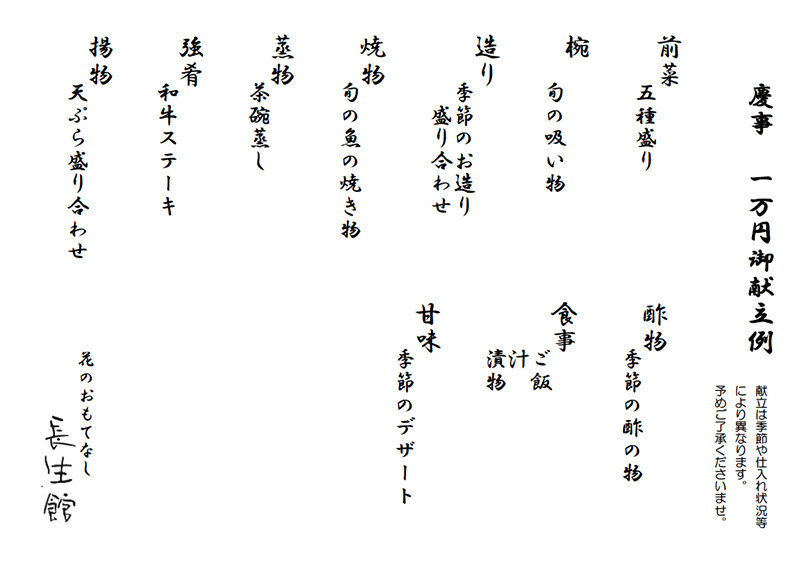 慶事　一万円御献立例
献立は季節や仕入れ状況等
により異なります。
予めご了承くださいませ。
前菜
五種盛り
椀
旬の吸い物
造り
季節のお造り
盛り合わせ
焼物
旬の魚の焼き物
蒸物
茶碗蒸し
強肴
和牛ステーキ
揚物
天ぷら盛り合わせ
酢物
季節の酢の物
食事
ご飯
汁
漬物
甘味
季節のデザート
花のおもてなし
長生館